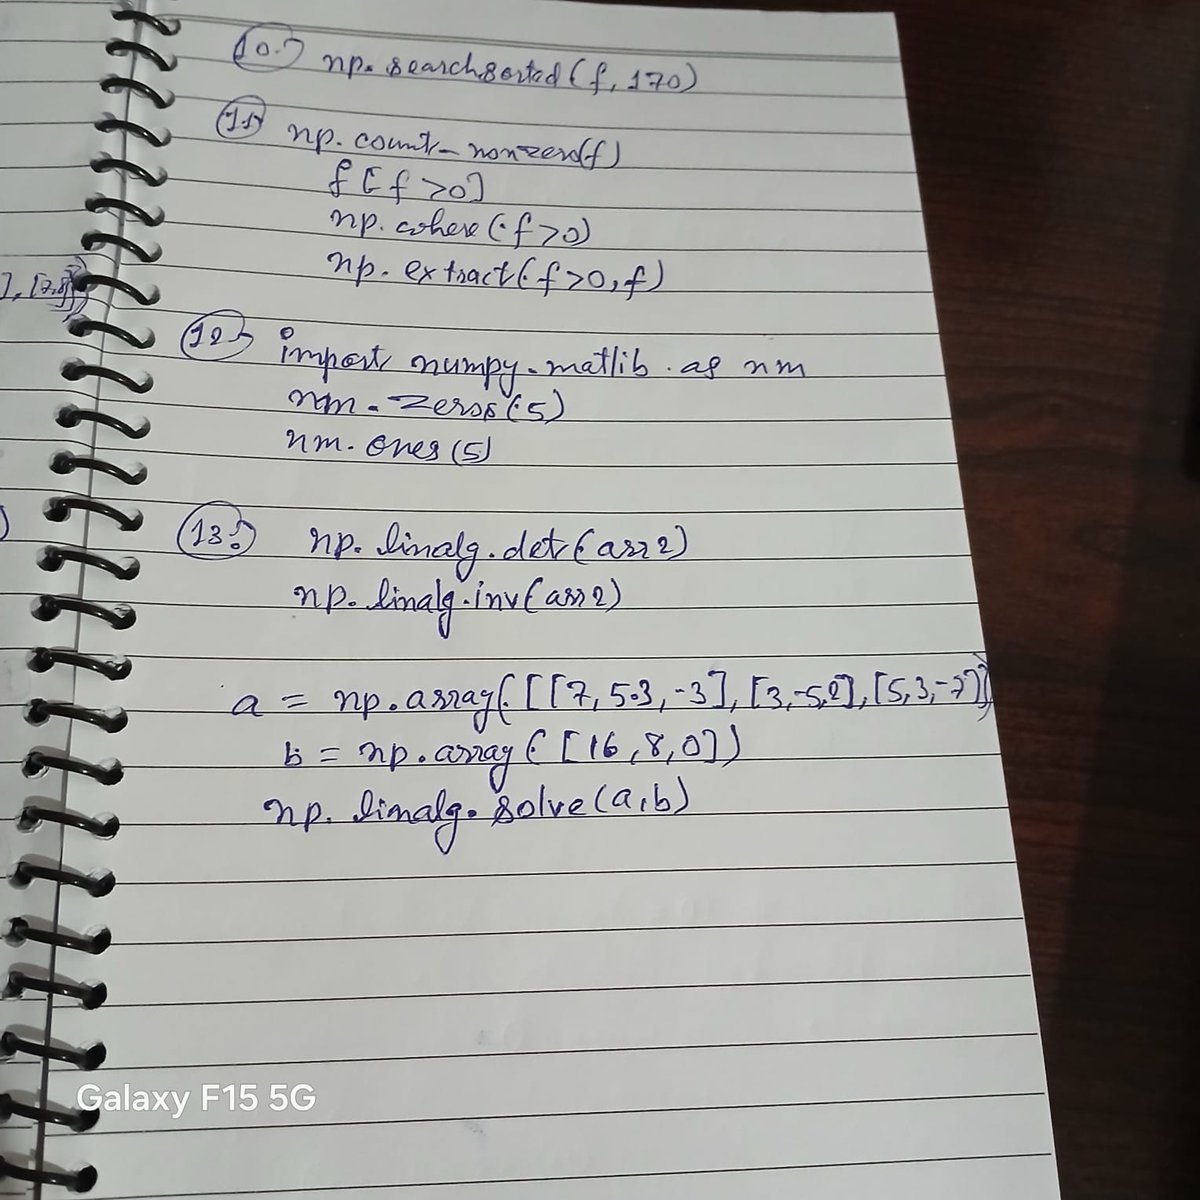 10.
np.searchsorted(f, 170)
11
np.count_nonzero(f)
f[f>0]
np.where(f>0)
np.extract(f>0, f)
], [7,8]])
12
import numpy.matlib as nm
nm.zeros(5)
nm.ones(5)
)
13.
np.linalg.det(arr2)
np.linalg.inv(arr2)
a = np.array([[7, 5.3, -3], [3,-5,2], [5,3,-7]])
b = np.array([16, 8, 0])
np.linalg.solve(a,b)
Galaxy F15 5G